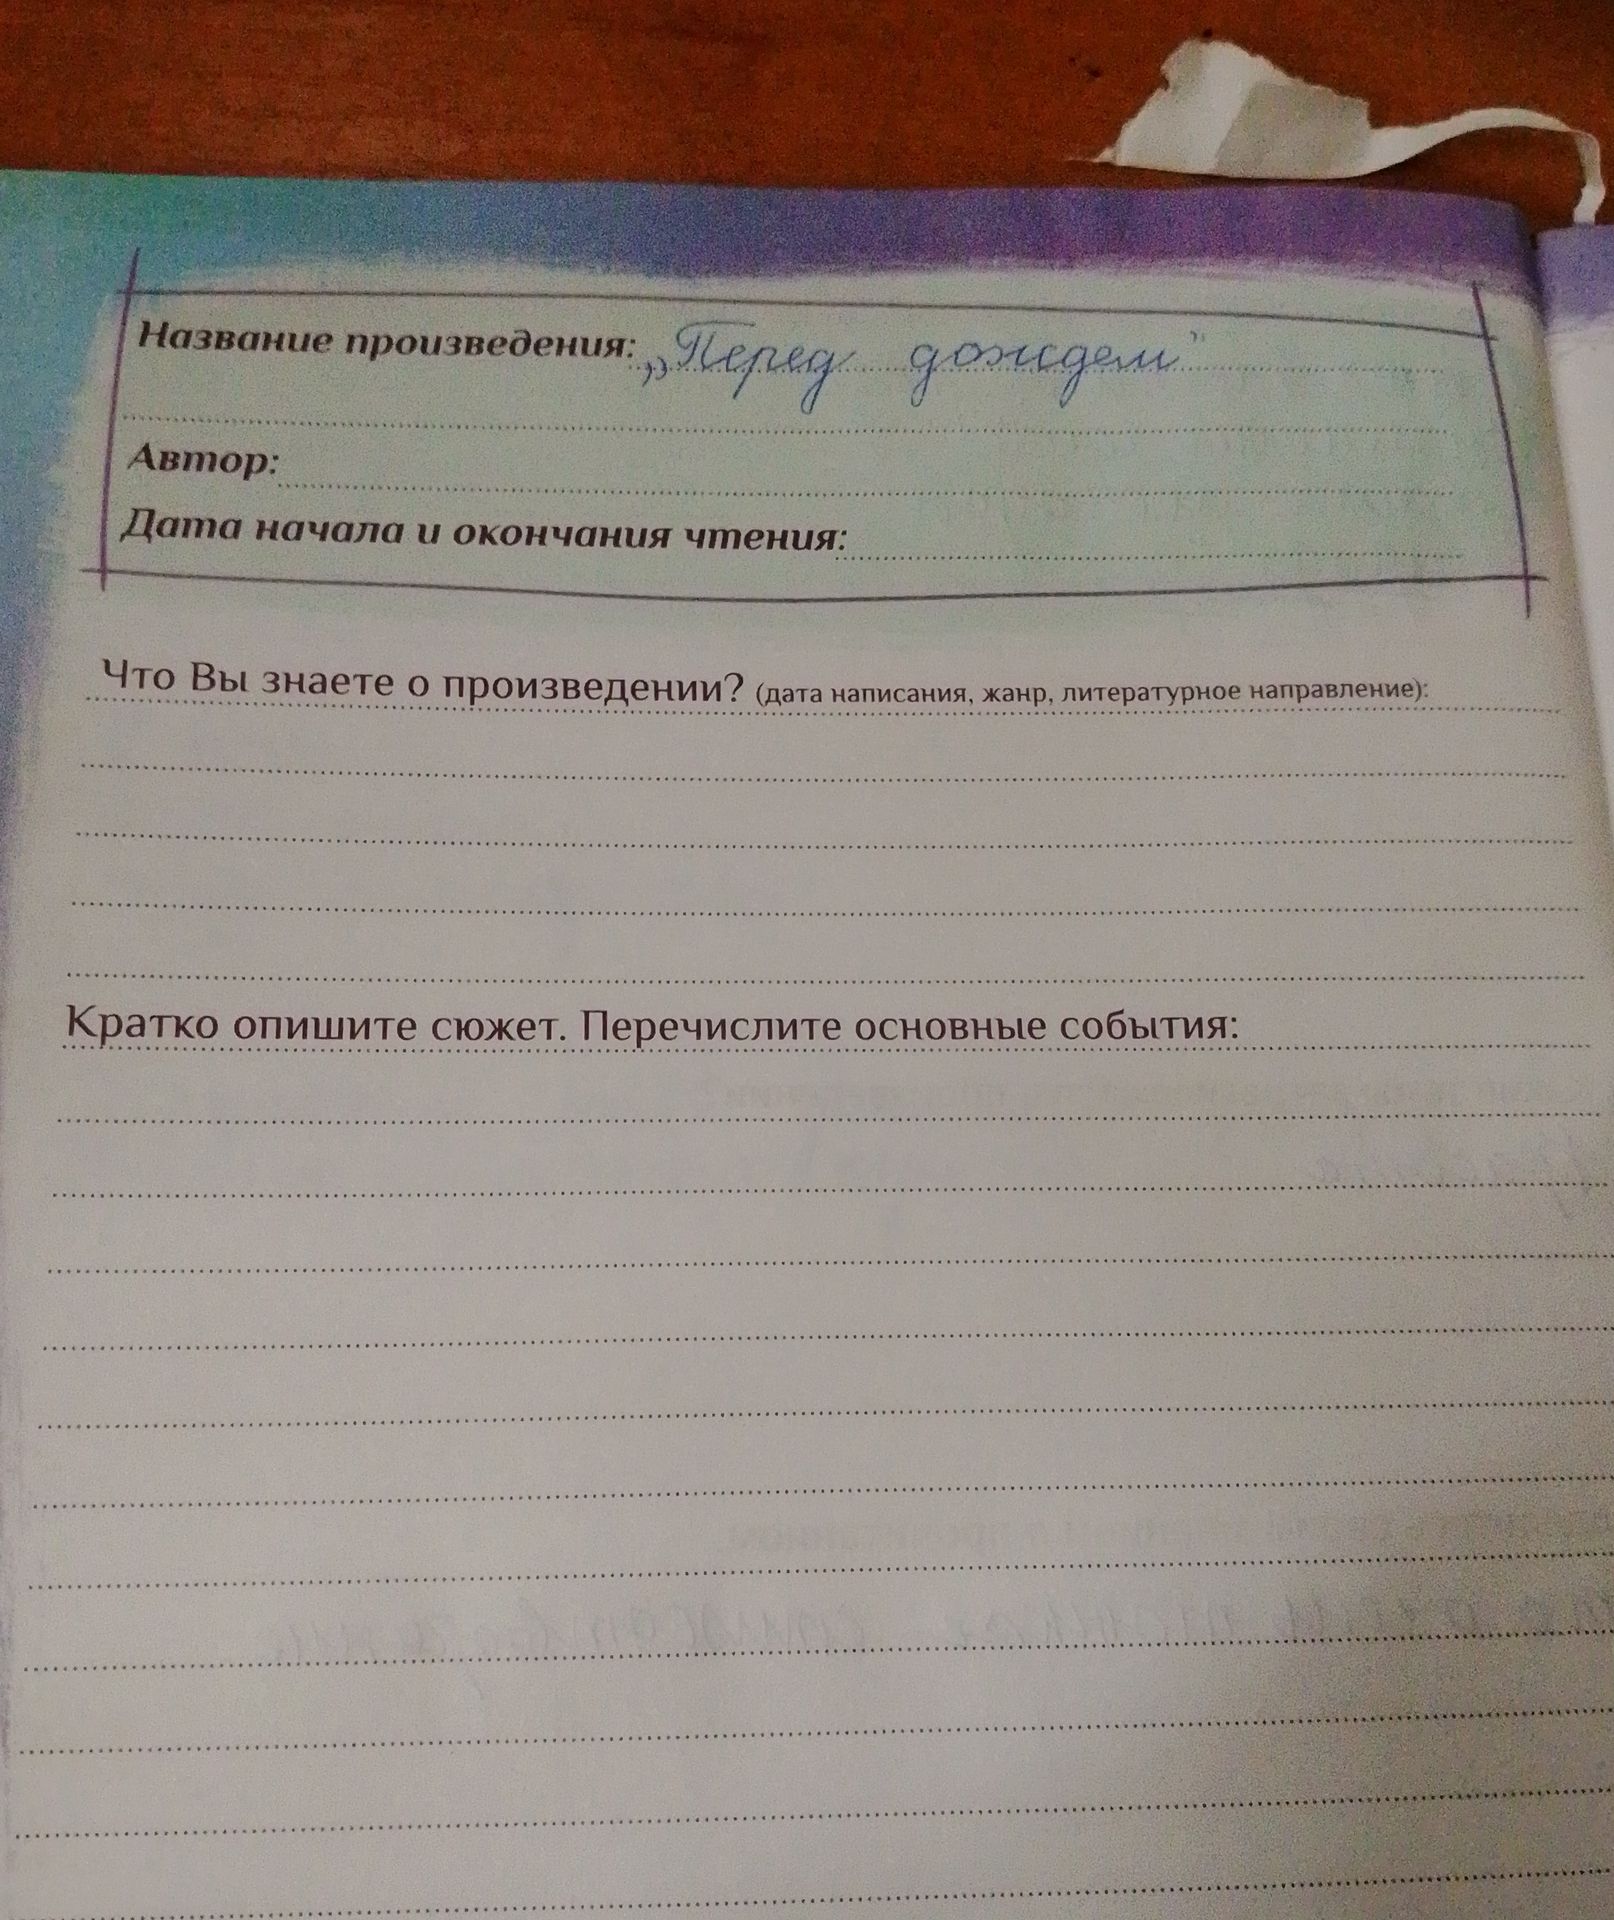 Название произведения: „Перед дождем"
Автор:
Дата начала и окончания чтения:
Что Вы знаете о произведении? (дата написания, жанр, литературное направление):
Кратко опишите сюжет. Перечислите основные события: